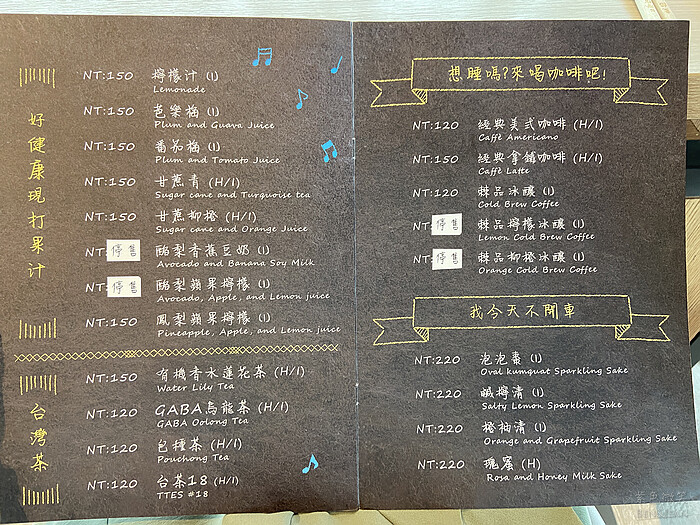 好健康現打果汁
NT:150 檸檬汁 (I)
Lemonade
NT:150 芭樂梅 (I)
Plum and Guava Juice
NT:150 番茄梅 (I)
Plum and Tomato Juice
NT:150 甘蔗青 (H/I)
Sugar cane and Turquoise tea
NT:150 甘蔗柳橙 (H/I)
Sugar cane and Orange Juice
NT: 停售 酪梨香蕉豆奶 (I)
Avocado and Banana Soy Milk
NT: 停售 酪梨蘋果檸檬 (I)
Avocado, Apple, and Lemon juice
NT:150 鳳梨蘋果檸檬 (I)
Pineapple, Apple, and Lemon juice
台灣茶
NT:150 有機香水蓮花茶 (H/I)
Water Lily Tea
NT:120 GABA烏龍茶 (H/I)
GABA Oolong Tea
NT:120 包種茶 (H/I)
Pouchong Tea
NT:120 台茶18 (H/I)
TTES #18
想睡嗎?來喝咖啡吧!
NT:120 經典美式咖啡 (H/I)
Caffè Americano
NT:150 經典拿鐵咖啡 (H/I)
Caffè Latte
NT:120 棘品冰釀 (I)
Cold Brew Coffee
NT: 停售 棘品檸檬冰釀 (I)
Lemon Cold Brew Coffee
NT: 停售 棘品柳橙冰釀 (I)
Orange Cold Brew Coffee
我今天不開車
NT:220 泡泡棗 (I)
Oval kumquat Sparkling Sake
NT:220 鹹檸清 (I)
Salty Lemon Sparkling Sake
NT:220 橙柚清 (I)
Orange and Grapefruit Sparkling Sake
NT:220 瑰蜜 (H)
Rosa and Honey Milk Sake